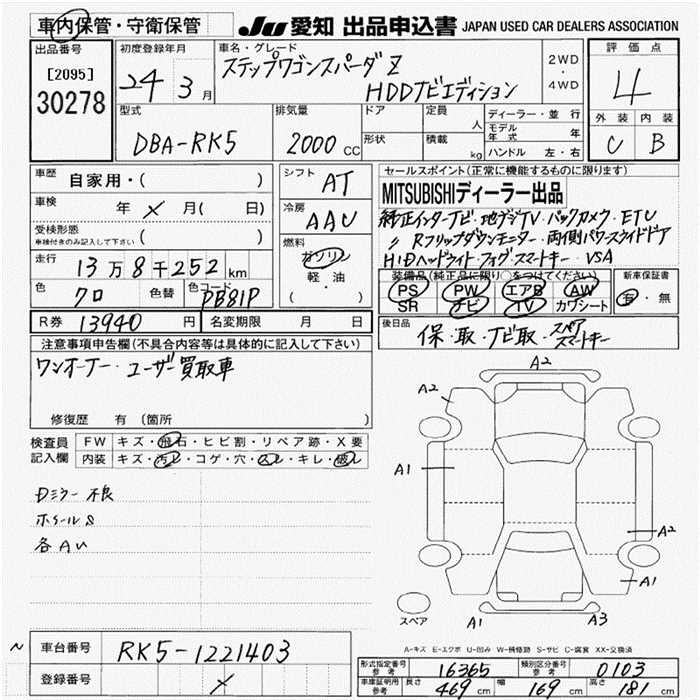 車内保管・守衛保管 JU 愛知 出品申込書 JAPAN USED CAR DEALERS ASSOCIATION
出品番号 初度登録年月 車名・グレード 評価点
[2095] 24年 3月 ステップワゴンスパーダ Z 2WD・4WD 4
30278 HDDナビエディション
型式 排気量 ドア 定員 人 ディーラー・並行 外装 内装
DBA-RK5 2000 CC 形状 積載 kg モデル年式 年 C B
ハンドル 左・右
車歴 自家用・( ) シフト AT セールスポイント(正常に機能するものに限ります)
MITSUBISHIディーラー出品
車検 年 × 月( 日) 冷房 AAC 純正インターナビ・地デジTV・バックカメラ・ETC
受検形態 ( ) 〃 Rフリップダウンモニター・両側パワースライドドア
車検付きのみ記入して下さい 燃料 ガソリン HIDヘッドライト・フォグ・スマートキー・VSA
走行 13万8千252km 軽・油 装備品(純正品に限り○をつけてください) 新車保証書
色 クロ 色替 色コード PB81P ( ) PS PW エアB AW 有・無
SR ナビ TV カワシート
R券 13940 円 名変期限 月 日 後日品 保・取・ナビ取・スペアスマートキー
注意事項申告欄(不具合内容等は具体的に記入して下さい)
ワンオーナー・ユーザー買取車
修復歴 有(箇所 )
検査員記入欄 FW キズ・飛石・ヒビ割・リペア跡・X要
内装 キズ・汚レ・コゲ・穴・スレ・キレ・破レ
Dミラー不良
ホイールS
各AU
A2
A2
A1
A2
A1
A1
A3
スペア
A-キズ E-エクボ U-凹み W-補修跡 S-サビ C-腐食 XX-交換済
~ 車台番号 RK5-1221403
登録番号 ×
形式指定番号参考 16365 類別区分番号参考 0103
車庫証明用参考 長さ 469 cm 幅 169 cm 高さ 181 cm